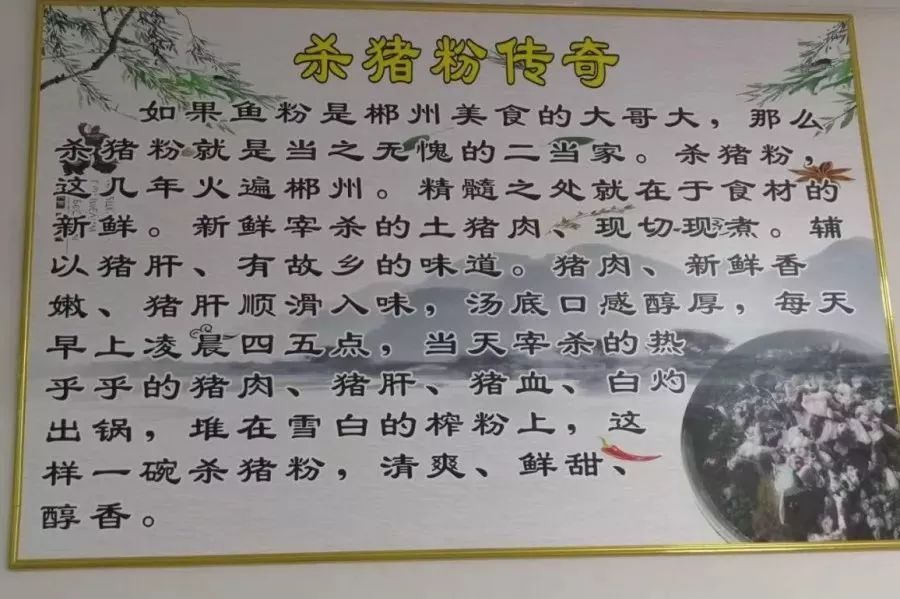 杀猪粉传奇
如果鱼粉是郴州美食的大哥大，那么
杀猪粉就是当之无愧的二当家。杀猪粉，
这几年火遍郴州。精髓之处就在于食材的
新鲜。新鲜宰杀的土猪肉、现切现煮。辅
以猪肝、有故乡的味道。猪肉、新鲜香
嫩、猪肝顺滑入味，汤底口感醇厚，每天
早上凌晨四五点，当天宰杀的热
乎乎的猪肉、猪肝、猪血、白灼
出锅，堆在雪白的榨粉上，这
样一碗杀猪粉，清爽、鲜甜、
醇香。